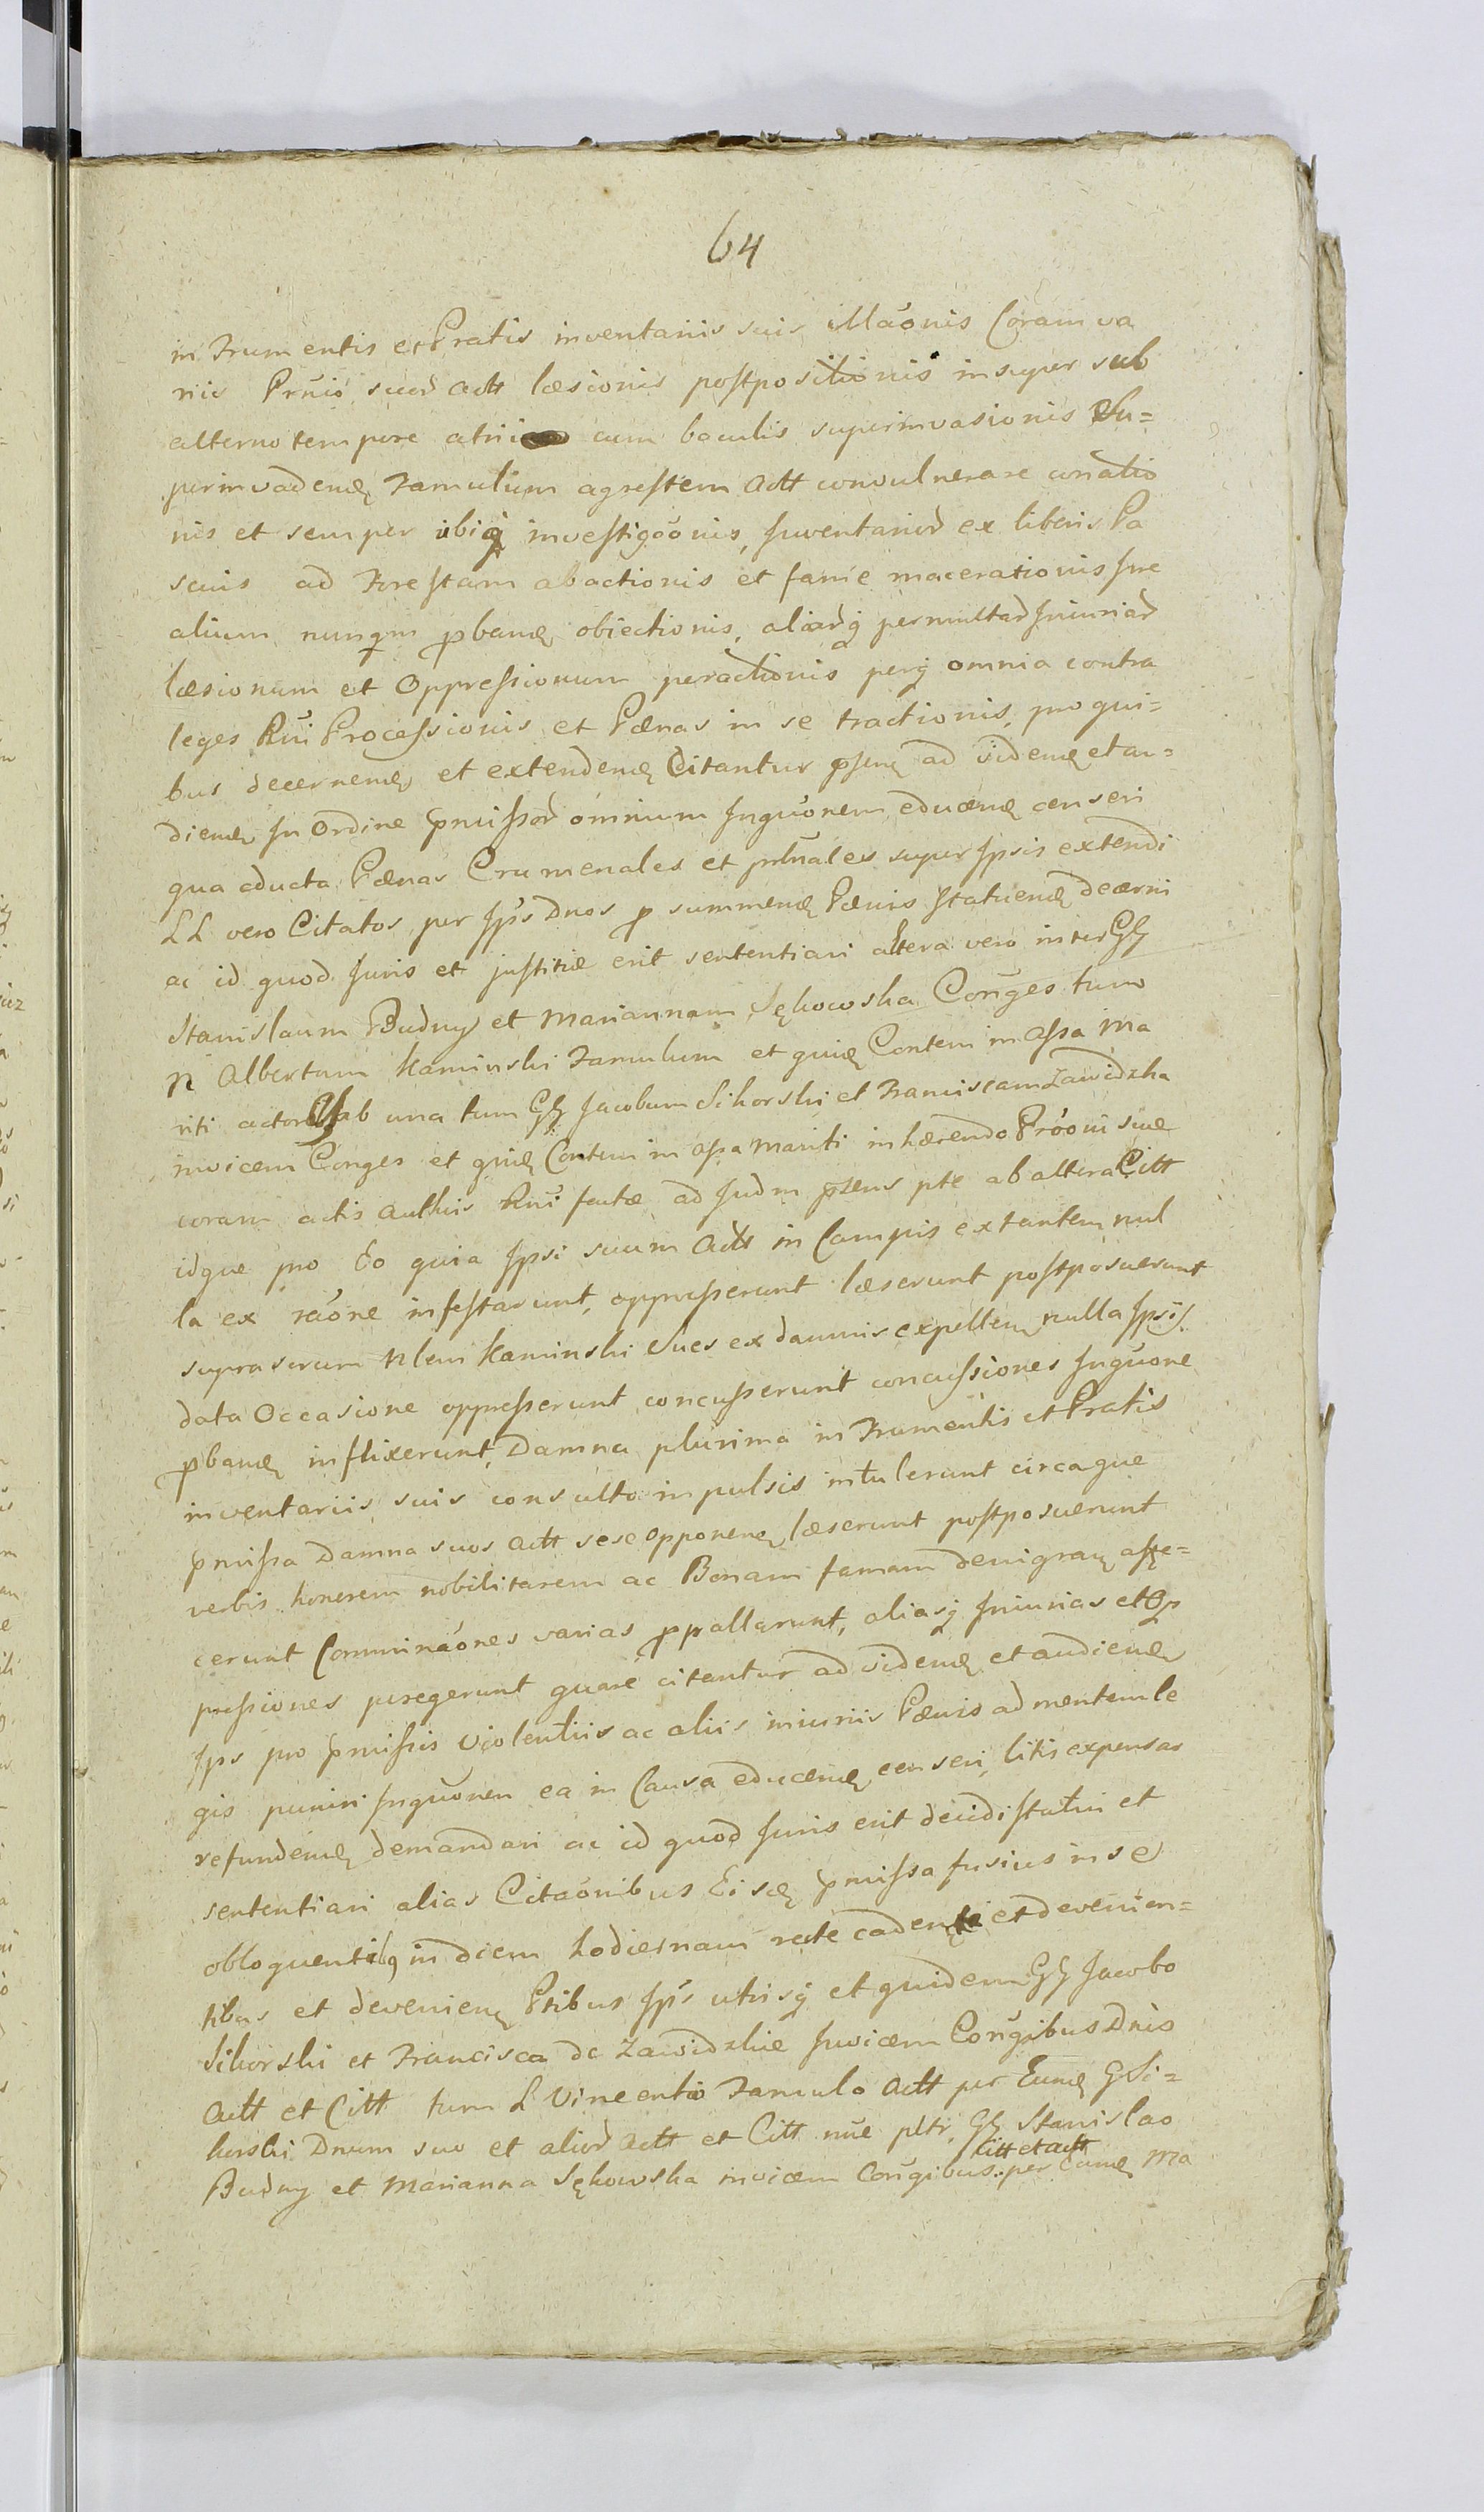 64
in Frumentis et Pratis inventariis suis illaõnis Coram va
riis suor Actt læsionis postpositionis insuper sub
alterno tempore atrii cum baculis superinvasionis Su=
perinvadend Famulum agrestem Actt convulnerare conatio
nis et semper ubiq investigaõnis, Inventarior ex liberis Pa
scuis ad Forestam abactionis et fame macerationis Ine
alium nunqm pband obiectionis, aliarq permultar Iniuriar
læsionum et Oppressionum peractionis perq omnia contra
leges Rni Processionis et Pænas in se tractionis, pro qui=
bus decernend et extendend Citantur ad vidend et au=
diend In Ordine pmissor omnium Inquõnem educend censeri
qua educta Pænas Crumenales et super Ipsis extendi
LL vero Citatos per Ips Dnos p summend Pænis statuend decerni
ac id quod Iuris et justitiæ erit sententiari altera vero inter GG
Stanislaum Budny et Mariannam Sękowska Conges tum
N Albertum Kaminski Famulum et quid Contem in Assa Ma
riti actor ab una tum GG Jacobum Sikorski et Franciscam Zawidzka
invicem Conges et quid Contem in assa Mariti inhærendo suæ
coram actis Authis Rni factæ ad Iudm pte ab altera Citt
idque pro Eo quia Ipsi suum Actt in Campis extantem nul
la ex raõne infestarunt, oppresserunt læserunt postposuerunt
supra Nlem Kaminski Sues ex damnis expellen nulla Ipsis
data Occasione oppresserunt concusserunt concussiones Inquõne
pband inflixerunt, Damna plurima in Frumentis et Pratis
inventariis suis consulto inpulsis intulerunt circaque
pmissa Damna suos Actt sese opponend læserunt postposuerunt
verbis honorem nobilitarem ac Bonam famam denigran affe=
cerunt Comminaõnes varias ppallarunt, aliasq Iniurias et Op
pressiones peregerunt quare citantur ad vidend et audiend
Ips pro pmissis violentiis ac aliis iniuriis Pænis ad mentem le
gis puniri Inquõnem ea in Causa educend censeri, litis expensas
refundend demandari ac id quod Iuris erit decidi statui et
sententiari alias Citaõnibus Eisd pmissa fusius in se
obloquentibq in diem hodiernam recte cadenti et devenien=
tibus et devenien Ptibus Ips utrisq et quidem GG Jacobo
Sikorski et Francisca de Zawidzkie Invicem Cõngibus Dnis
Actt et Citt tum L Vincentio Famulo Actt per Eund G Si=
korski Dnum suo et alior Actt et Citt nue pltr, GG Stanislao
Budny et Marianna Sękowska invicem Congibus citt et actt per Eund Ma